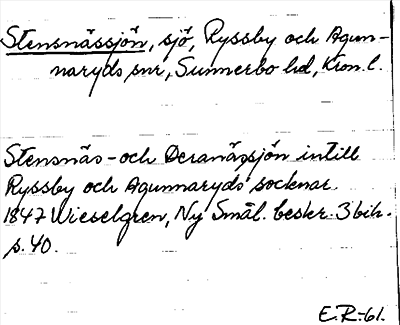 Stensnässjön, sjö, Ryssby och Agun-
naryds snr, Sunnerbo hd, Kron. l.
Stensnäs- och Deranässjön intill
Ryssby och Agunnaryds socknar.
1847 Wieselgren, Ny Smål. beskr. 3 bih.
s. 40.
E.R-61.